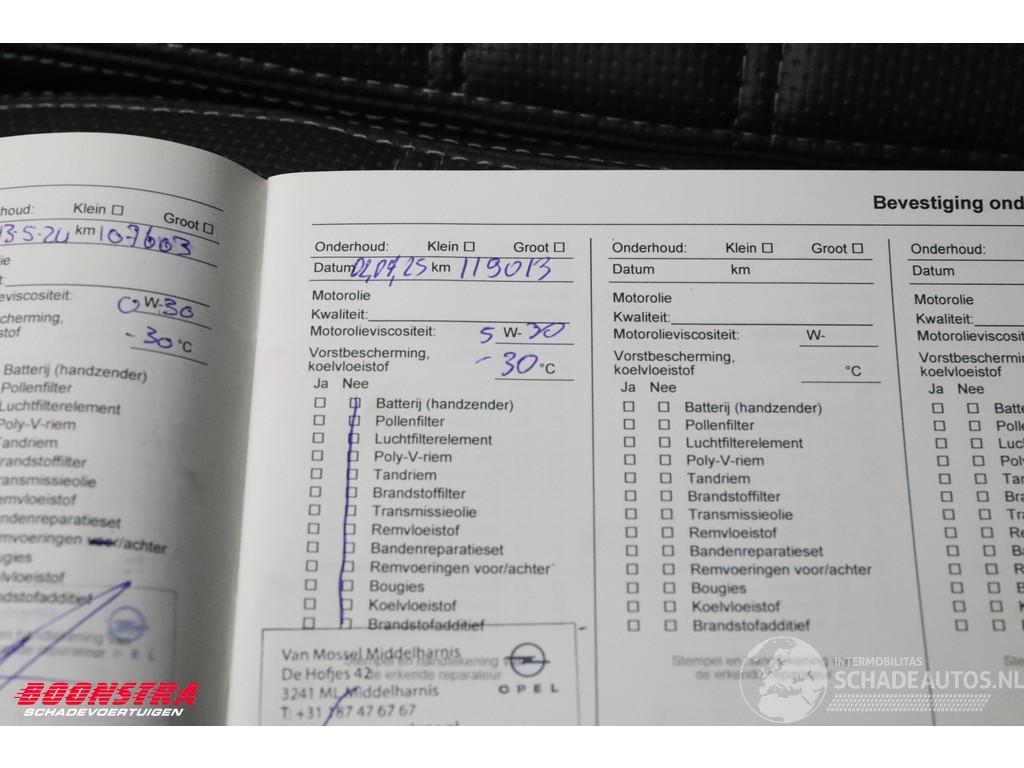 Bevestiging ond
nhoud: Klein Groot
13-5-24 km 107603
ie
t:
ieviscositeit: 0 W-30
cherming,
stof -30 °C
Batterij (handzender)
Pollenfilter
Luchtfilterelement
Poly-V-riem
Tandriem
randstoffilter
ransmissieolie
emvloeistof
andenreparatieset
mvoeringen voor/achter
ougies
elvloeistof
ndstofadditief
OPEL
Onderhoud: Klein Groot
Datum 02,07,25 km 119013
Motorolie
Kwaliteit:
Motorolieviscositeit: 5 W-30
Vorstbescherming,
koelvloeistof -30 °C
Ja Nee
Batterij (handzender)
Pollenfilter
Luchtfilterelement
Poly-V-riem
Tandriem
Brandstoffilter
Transmissieolie
Remvloeistof
Bandenreparatieset
Remvoeringen voor/achter
Bougies
Koelvloeistof
Brandstofadditief
Van Mossel Middelharnis
Stempel en handtekening van
De Hofjes 42
de erkende reparateur
3241 ML Middelharnis
T: +31 187 47 67 67
OPEL
Onderhoud: Klein Groot
Datum km
Motorolie
Kwaliteit:
Motorolieviscositeit: W-
Vorstbescherming,
koelvloeistof °C
Ja Nee
Batterij (handzender)
Pollenfilter
Luchtfilterelement
Poly-V-riem
Tandriem
Brandstoffilter
Transmissieolie
Remvloeistof
Bandenreparatieset
Remvoeringen voor/achter
Bougies
Koelvloeistof
Brandstofadditief
Stempel en handtekening van
de erkende reparateur
Onderhoud:
Datum
Motorolie
Kwaliteit:
Motorolieviscositeit:
Vorstbescherming,
koelvloeistof
Ja Nee
Batte
Polle
Luch
Poly
Tan
Bra
Tra
Re
Ba
Re
B
K
B
BOONSTRA
SCHADEVOERTUIGEN
INTERMOBILITAS
SCHADEAUTOS.NL